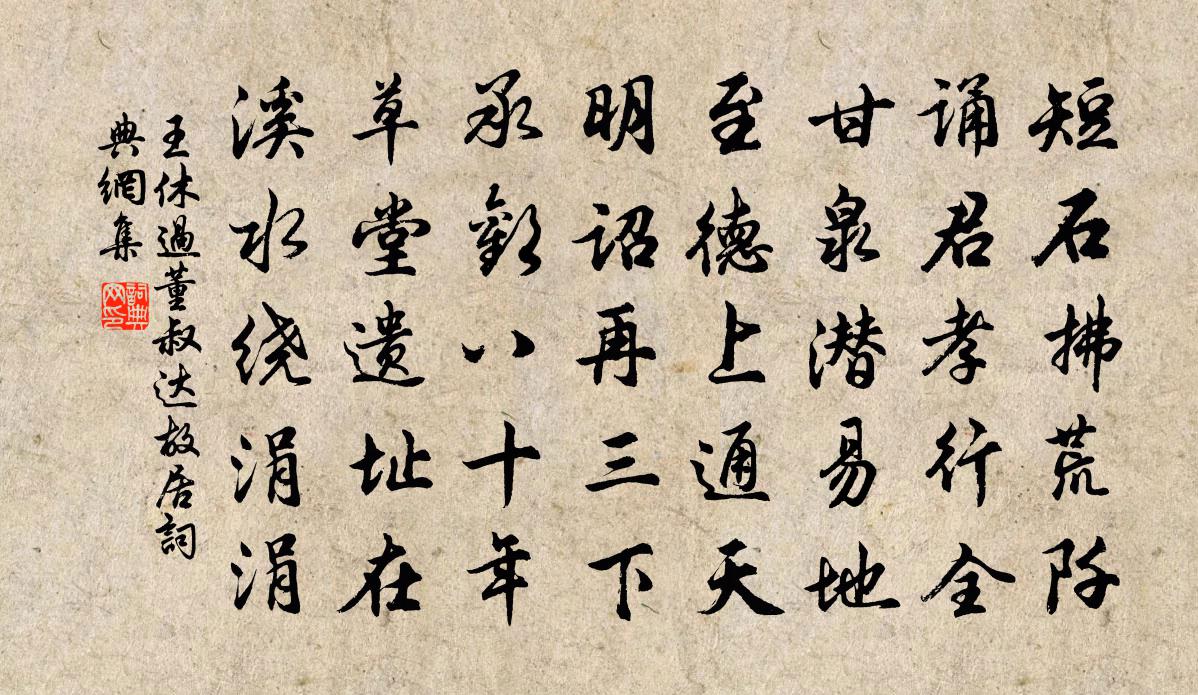 短石拂荒阡
诵君孝行全
甘泉潜易地
至德上通天
明诏再三下
承欢八十年
草堂遗址在
溪水绕涓涓
王休過董叔达故居詞
典網集
詞典
网印